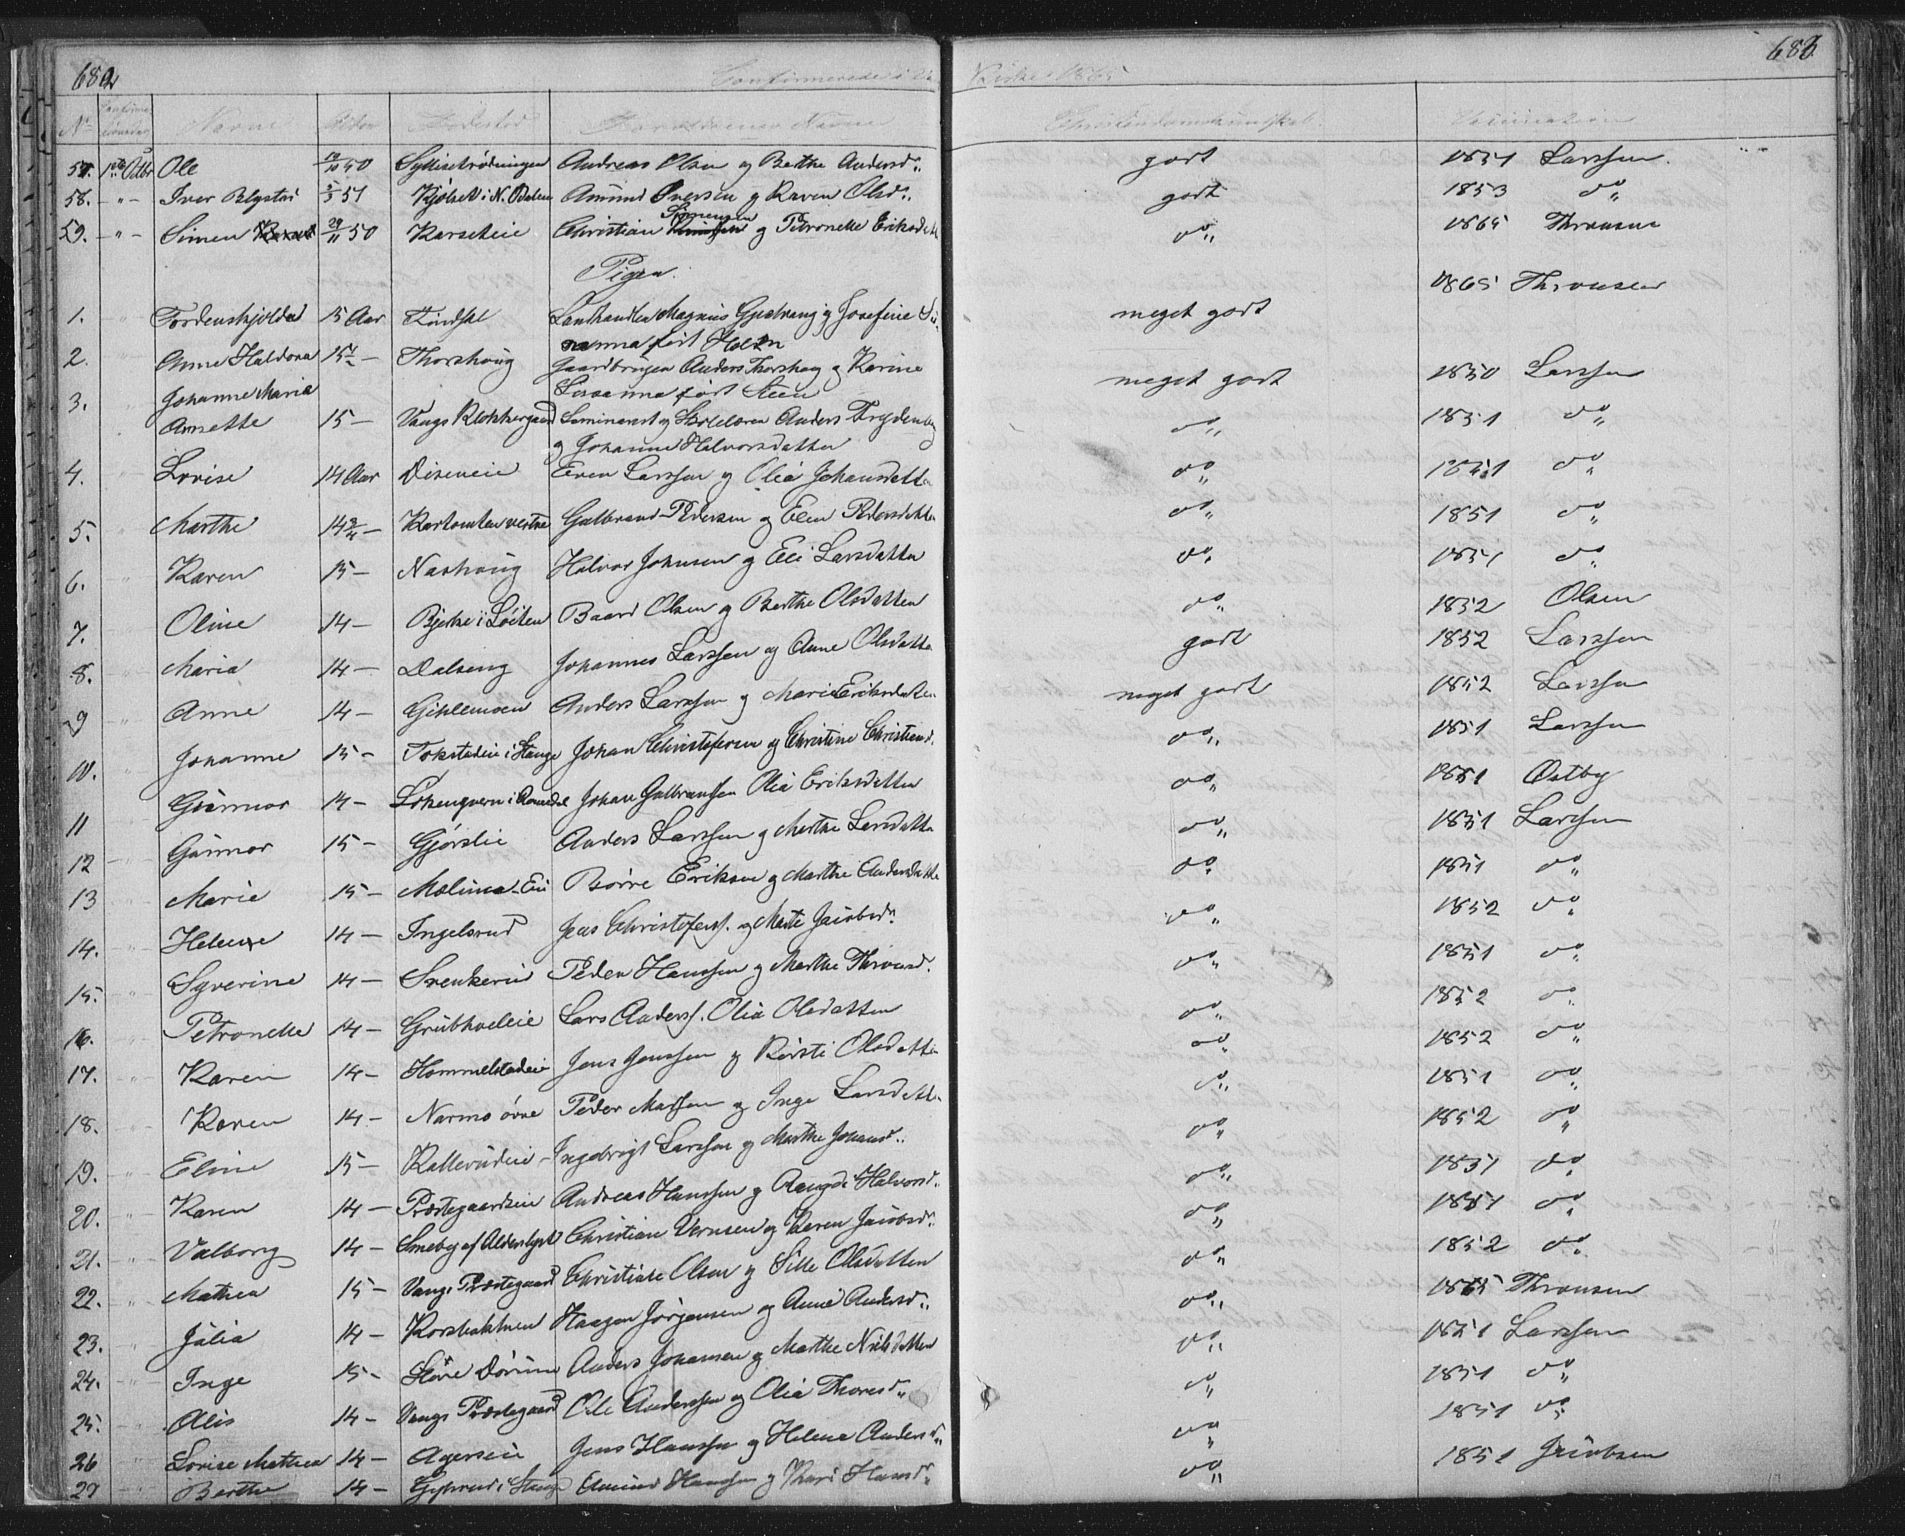 682 Confirmerede i Kirke 1865 683
No Navne Alder Bosted Forældrenes Navne Christendomskundskab Vaccination
57. 1ste Octbr Ole 50 Andreas Olsen og Berthe Andersd. godt 1851 Larssen.
58. - " - Iver 51 i N. Odalen Amund Iversen og Karen Olsd. godt 1853 do
59. - " - Simen 29/11 50 Korsekeie Christian Simensen og Petronelle Eriksdatt do 1865 Thronsen
Piger.
1. Tordenskjolda 15 Aar Landhandler Magnus og Josefine meget godt 1865 Thronsen
født Holen
2. Anne Haldora 15 1/2 - Thorshoug Gaardbruger Anders Thorshoug og Karine meget godt 1850 Larssen
født Steen
3. Johanne Maria
Annette 15 - Vangs Klokkergaard Seminarist og Skolelærer Anders Frydenberg do 1851 do
og Johanne Halvorsdatter
4. Lovise 14 Aar Diseneie Even Larssen og Olia Johansdatter do 1851 do
5. Marthe 14 - vestre Gulbrand Pedersen og Elen Pedersdatter do 1851 do
6. " Karen 15 - Nashoug Halvor Johnsen og Eli Larsdatter do 1851 do
7. " Oline 14 - Bjerke i Löiten Baard Olsen og Berthe Olsdatter do 1852 Olsen
8. " Maria 14 - Dalseng Johannes Larssen og Anne Olsdatter godt 1852 Larssen
9 " Anne 14 - Gihlemoen Anders Larssen og Marie Eriksdatter meget godt 1852 Larssen
10. " Johanne 15 - i Stange Johan Christofersen og Christine Christiansd. do 1851 Larssen
11 Gunnor 14 - i Romedal Johan Gulbransen Olia Eriksdatter do 1851 Østby
12 " Gunnor 15 - Gjörslie Anders Larssen og Marthe Larsdatter do 1851 Larssen
13 " Marie 15 - Börre Eriksen og Marthe Andersdatter do 1851 do
14. " Helene 14 - Ingelsrud Jens Christofers. og Marte Jacobsd. do 1852 do
15. " Syverine 14 - Svenkerud Peder Hanssen og Marthe Thronsd. do 1851 do
16. " Petronelle 14 - Grubholeie Lars Anders. Olia Olsdatter do 1852 do
17. " Karen 14 - Hommelstadeie Jens Jenssen og Kirsti Olsdatter do 1852 do
18. " Karen 14 - Narmo övre Peder Matssen og Inge Larsdatt. do 1851 do
19. " Eline 15 - Kallerudeie - Ingebrigt Larssen og Marthe Johansd.. do 1852 do
20. " Karen 14 - Præstegaardseie Andreas Hanssen og Halvorsd.. do 1851 do
21. " Valborg 14 - Smeby af Alderslyst Christian og Karen Jacobsd.. do 1851 do
22. " Mathea 15 - Vangs Præstegaard Christian Olsen og Sille Olsdatter do 1852 do
23. " Julia 14 - Haagen Jörgensen og Anne Andersd.. do 1865 Thronsen
24. " Inge 15 - Störe Dörum Anders Johansen og Marthe Nielsdatter do 1851 Larssen
25. " Alis 14 - Vangs Præstegaard Ole Anderssen og Olia Thoresd.. do 1851 do
26 " Lovise Mathea 14 - Agerseie Jens Hanssen og Helene Andersd.. do 1851 do
27 " Berthe 14 - i Stange Amund Hanssen og Kari Hansd.. do 1851 Jacobsen